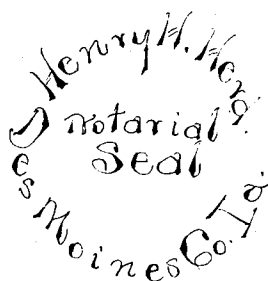 Henry H. Herd.
notarial
Seal
Des Moines Co. Ia.